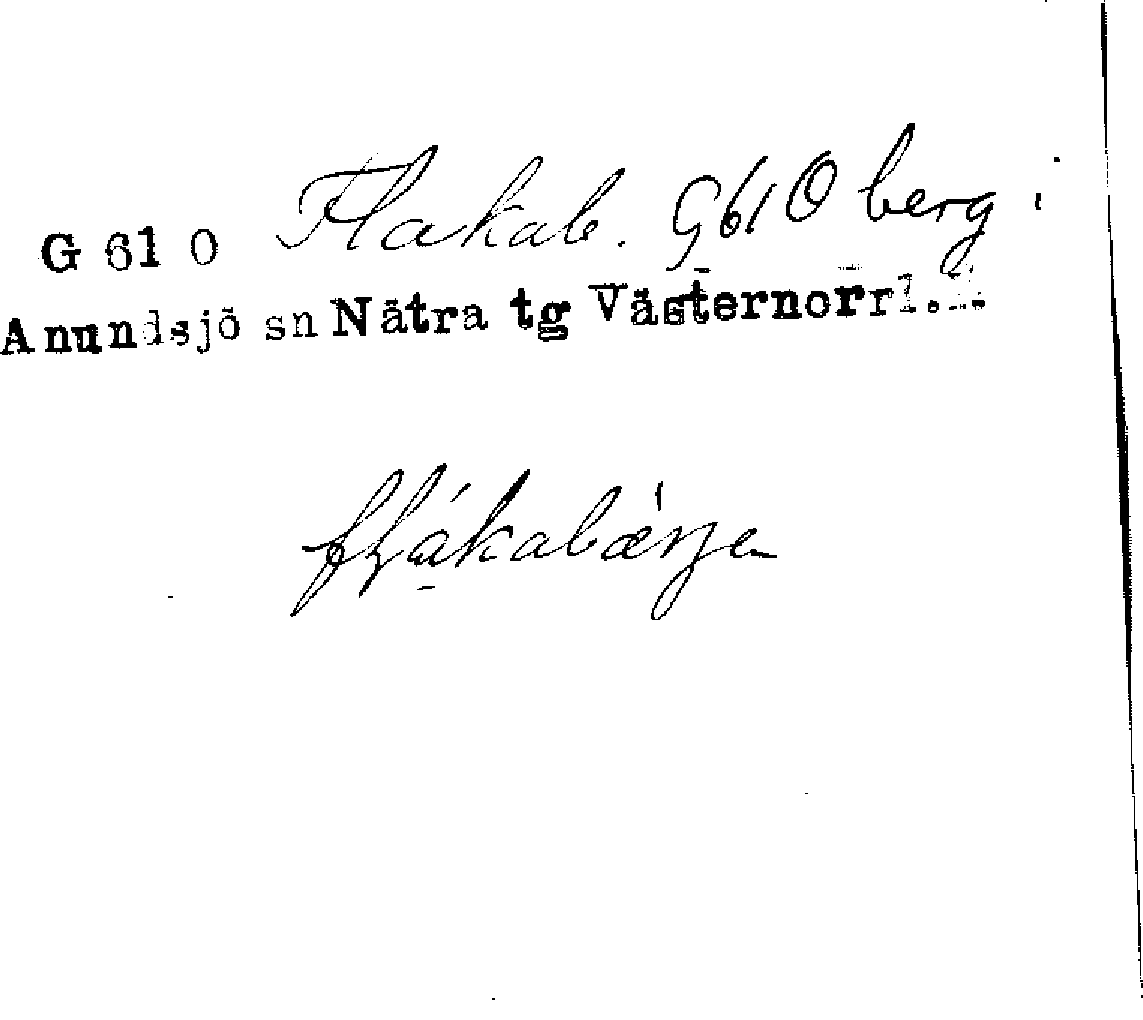 G 61 0 Flakab. G610 berg i
Anundsjö sn Nätra tg Västernorrl.